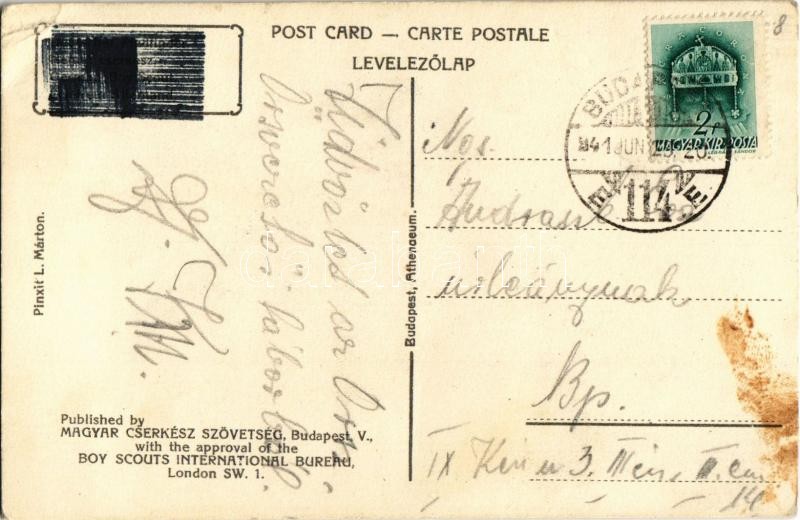 POST CARD — CARTE POSTALE
LEVELEZŐLAP
8
BUDAPEST
941 JUN 20
114
2f
MAGYAR KIR. POSTA
Üdvözlet az Ors.
táborból.
Pinxit L. Márton.
Budapest, Athenaeum.
Published by
MAGYAR CSERKÉSZ SZÖVETSÉG, Budapest, V.,
with the approval of the
BOY SCOUTS INTERNATIONAL BUREAU,
London SW. 1.
Nos.
úrleánynak
Bp.
IX 3. III. II. em
14
darabanth